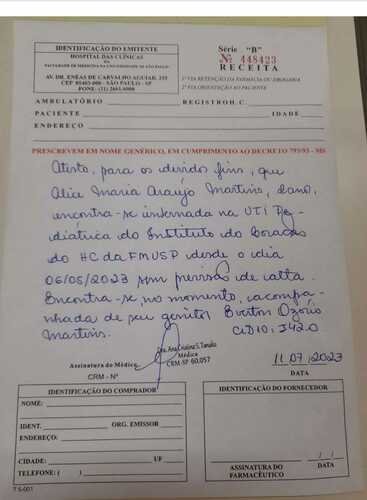 IDENTIFICAÇÃO DO EMITENTE
HOSPITAL DAS CLÍNICAS
DA
FACULDADE DE MEDICINA DA UNIVERSIDADE DE SÃO PAULO
AV. DR. ENÉAS DE CARVALHO AGUIAR, 255
CEP 05403-000 - SÃO PAULO - SP
FONE: (11) 2661-0000
Série "B"
Nº 448423
RECEITA
1ª VIA RETENÇÃO DA FARMÁCIA OU DROGARIA
2ª VIA ORIENTAÇÃO AO PACIENTE
AMBULATÓRIO
REGISTRO H.C.
PACIENTE
IDADE
ENDEREÇO
PRESCREVEM EM NOME GENÉRICO, EM CUMPRIMENTO AO DECRETO 793/93 - MS
Atesto, para os devidos fins, que
Alice Maria Araújo Martins,
encontra-se internada na UTI Pe-
diátrica do Instituto do Coração
do HC da FMUSP desde o dia
06/05/2023 sem previsão de alta.
Encontra-se, no momento, acompa-
nhada de seu genitor Everton Ozório
Martins.
CID10: J42.0
Dra. Ana Cristina S. Tanaka
Médica
CRM-SP 60.057
Assinatura do Médico
CRM - Nº
11/07/2023
DATA
IDENTIFICAÇÃO DO COMPRADOR
NOME:
IDENT.
ORG. EMISSOR
ENDEREÇO:
CIDADE:
UF
TELEFONE: ( )
IDENTIFICAÇÃO DO FORNECEDOR
/ /
ASSINATURA DO
FARMACÊUTICO
DATA
T 5-001